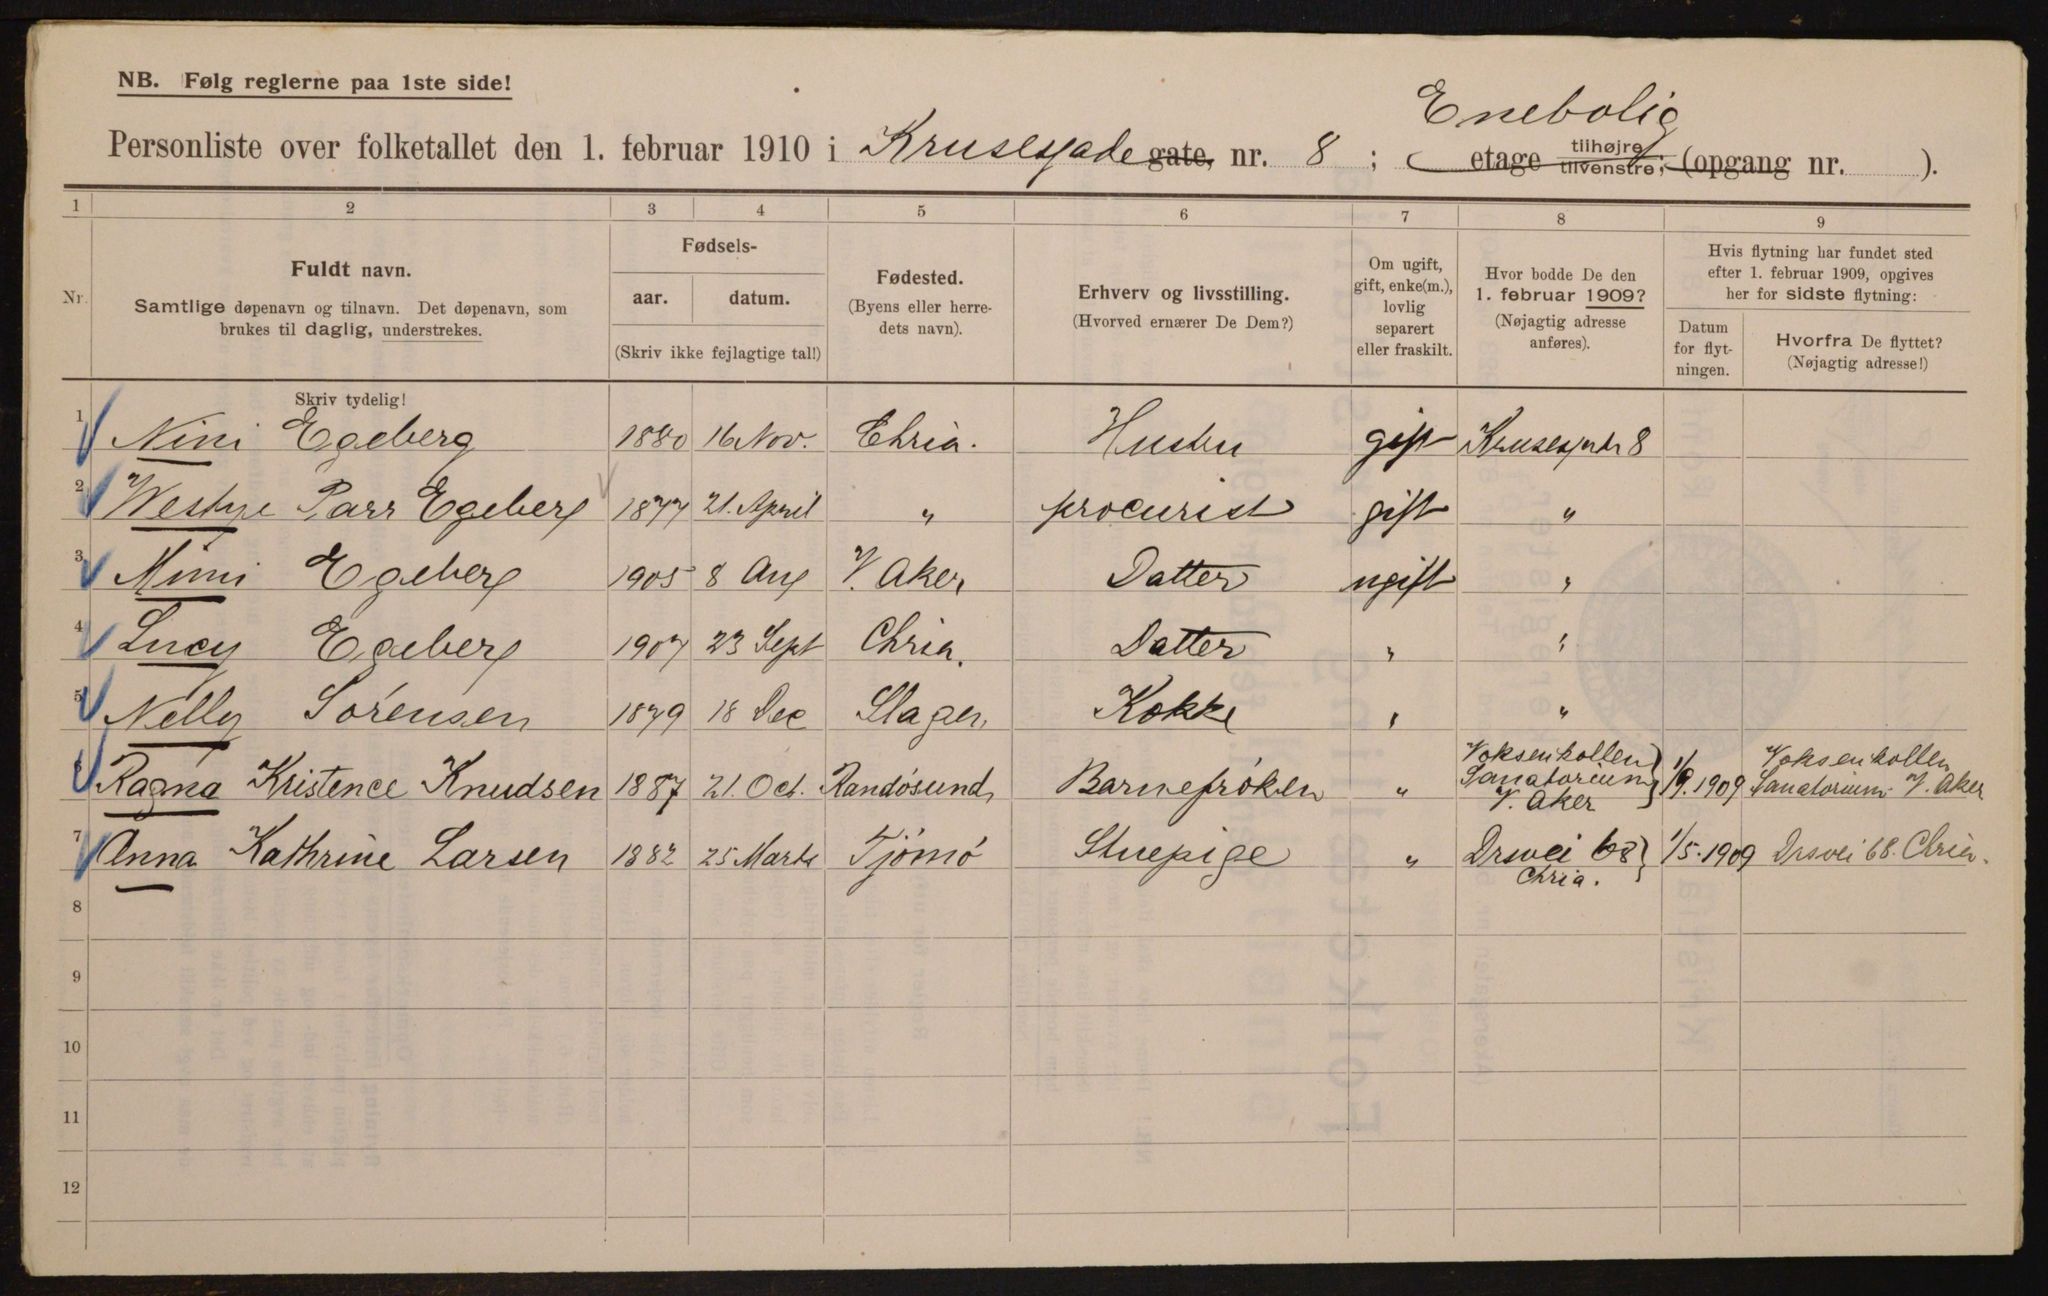 NB. Følg reglerne paa 1ste side!
Enebolig
Personliste over folketallet den 1. februar 1910 i Krusesgade gate, nr. 8 ; etage tilhøjre tilvenstre; (opgang nr. ).
1 2 3 4 5 6 7 8 9
Nr.
Fuldt navn.
Samtlige døpenavn og tilnavn. Det døpenavn, som
brukes til daglig, understrekes.
Fødsels-
aar. datum.
(Skriv ikke fejlagtige tal!)
Fødested.
(Byens eller herre-
dets navn).
Erhverv og livsstilling.
(Hvorved ernærer De Dem?)
Om ugift,
gift, enke(m.),
lovlig
separert
eller fraskilt.
Hvor bodde De den
1. februar 1909?
(Nøjagtig adresse
anføres).
Hvis flytning har fundet sted
efter 1. februar 1909, opgives
her for sidste flytning:
Datum
for flyt-
ningen.
Hvorfra De flyttet?
(Nøjagtig adresse!)
Skriv tydelig!
1 Nini Egeberg 1880 16 Nov. Chria. Hustru gift Krusesgade 8
2 Westye Parr Egeberg 1877 21. April " procurist gift "
3 Mimi Egeberg 1905 8 Aug V. Aker Datter ugift "
4 Lucy Egeberg 1907 23 Sept Chria. Datter " "
5 Nelly Sörensen 1879 18 Dec Slagen Kokke " "
6 Ragna Kristence Knudsen 1887 21. Oct. Randösund Barnefröken " Voksenkollen Sanatorium V. Aker 1/9. 1909 Voksenkollen Sanatorium V. Aker
7 Anna Kathrine Larsen 1882 25 Marts Tjömö Stuepige " Drsvei 68 Chria. 1/5. 1909 Drsvei 68. Chria.
8
9
10
11
12